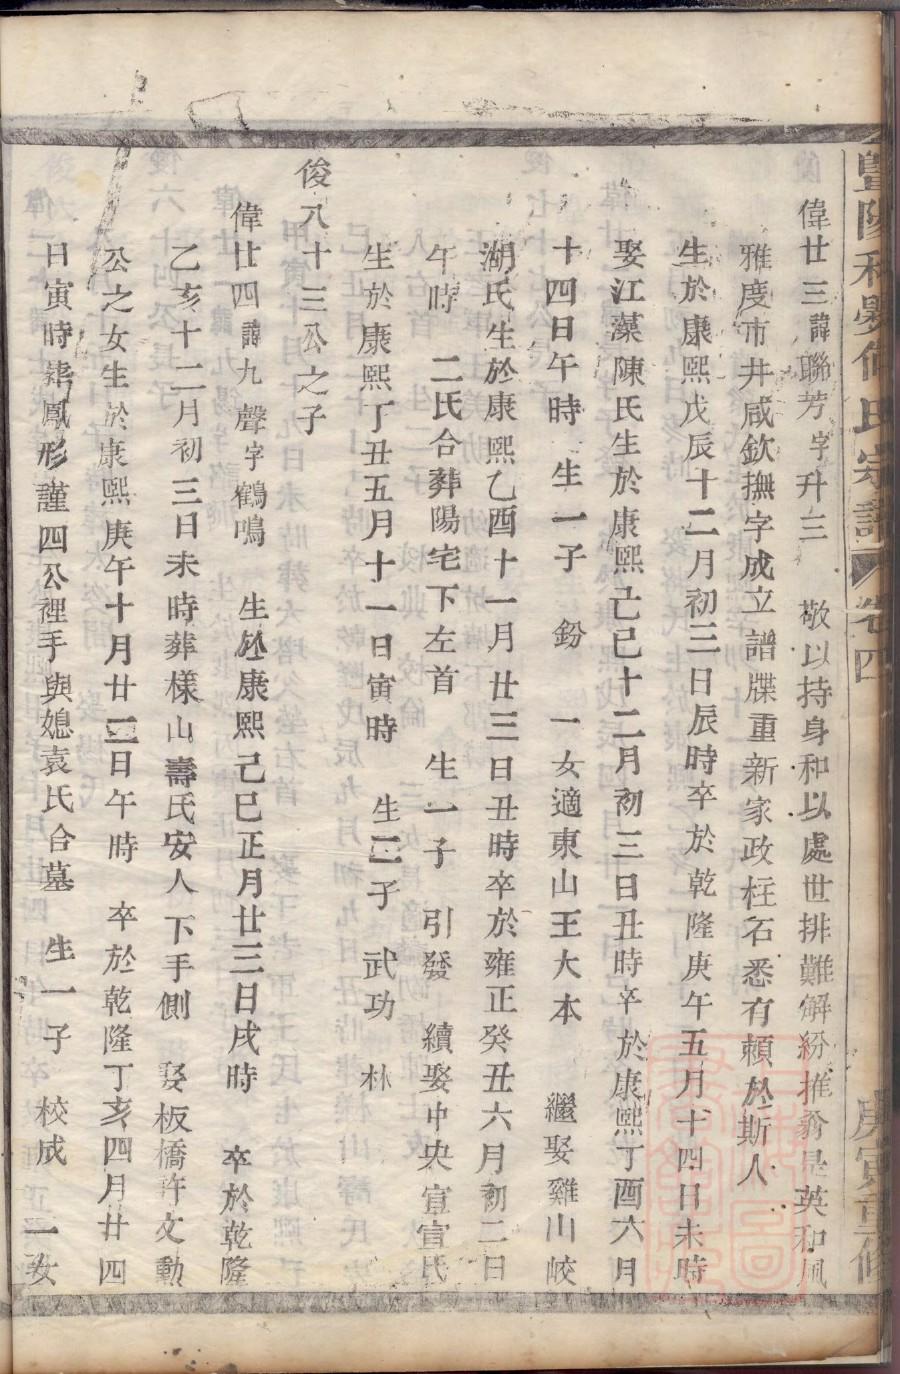 偉廿三諱聯芳字升三 敬以持身和以處世排難解紛推翁是英和風
雅度市井咸欽撫字成立譜牒重新家政柱石悉有賴於斯人
生於康熙戊辰十二月初三日辰時卒於乾隆庚午五月十四日未時
娶江藻陳氏生於康熙己巳十二月初三日丑時卒於康熙丁酉六月
十四日午時 生一子 鈖 一女適東山王大本 繼娶雞山峧
湖氏生於康熙乙酉十一月廿三日丑時卒於雍正癸丑六月初二日
午時 二氏合葬陽宅下左首 生一子 引發 續娶中央宣宣氏
生於康熙丁丑五月十一日寅時 生二子 武功 朴
俊八十三公之子
偉廿四諱九聲字鶴鳴 生於康熙己巳正月廿三日戌時 卒於乾隆
乙亥十二月初三日未時葬樣山壽氏安人下手側 娶板橋許文勳
公之女生於康熙庚午十月廿三日午時 卒於乾隆丁亥四月廿四
日寅時 鳳形謹四公裡手與媳袁氏合墓 生一子 校成 一女